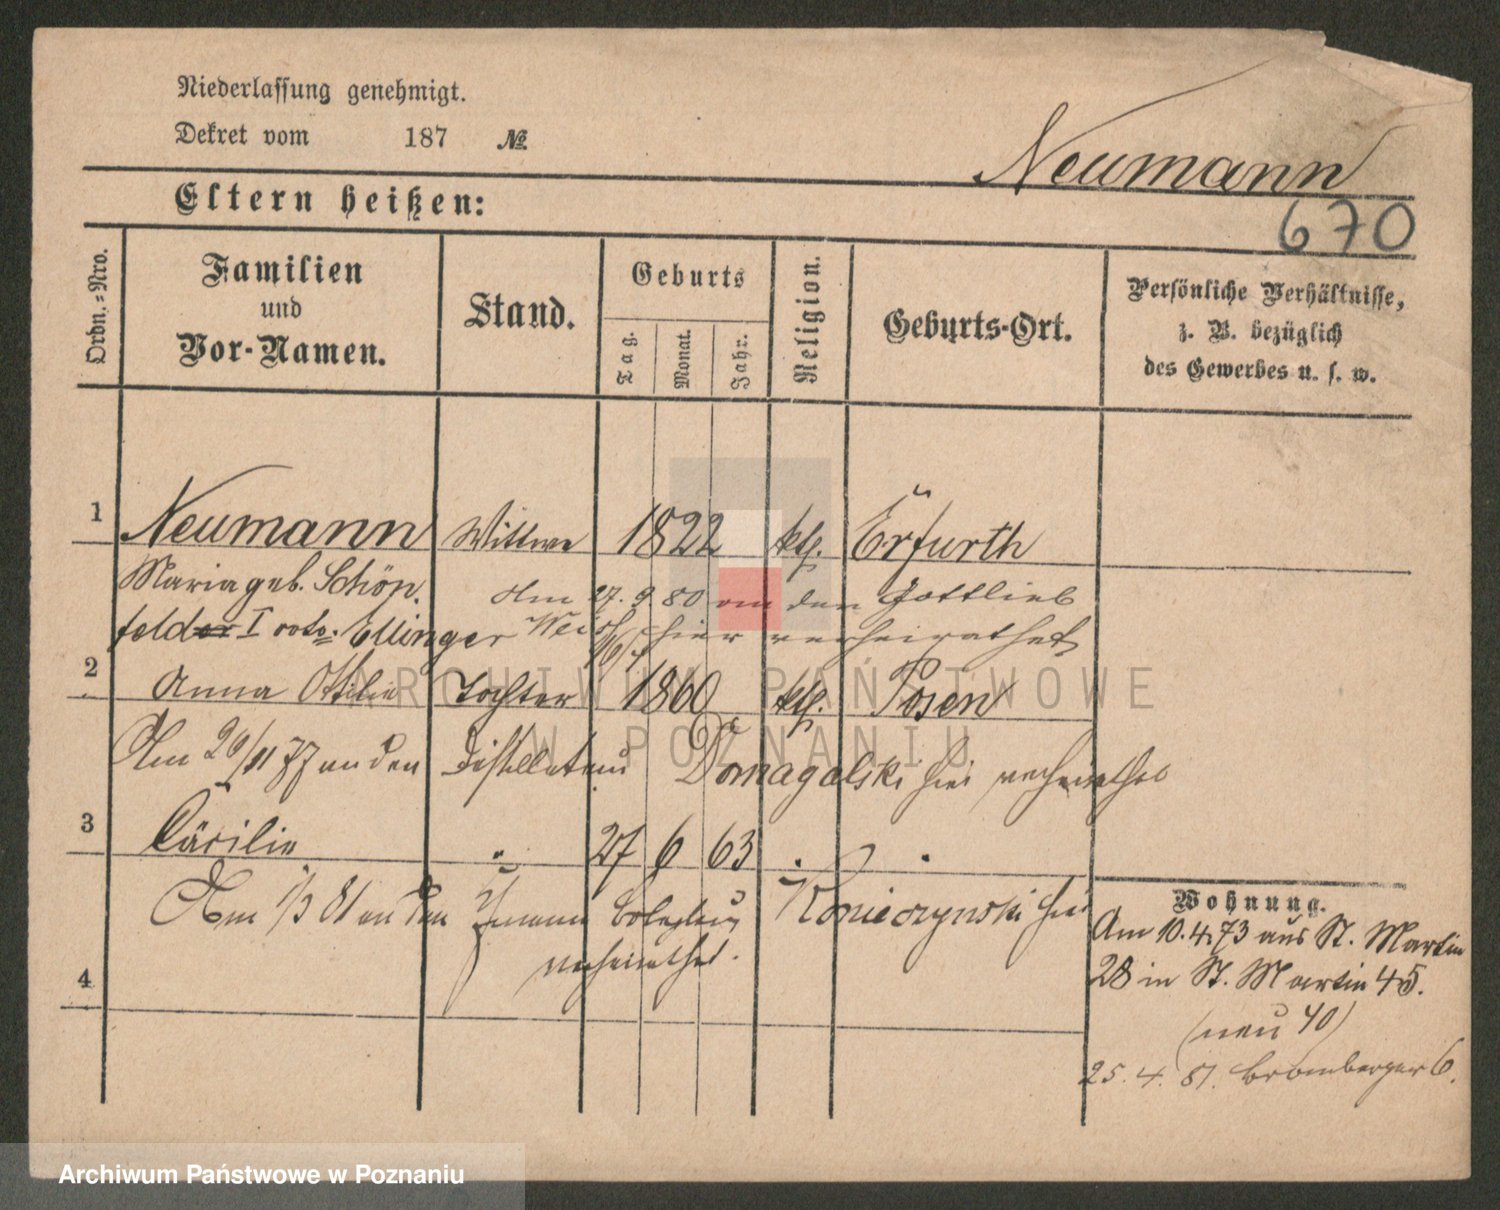 Niederlassung genehmigt.
Dekret vom 187 №
Neumann
Eltern heißen:
670
Ordn.-Nro.
Familien
und
Vor-Namen.
Stand.
Geburts
Tag.
Monat.
Jahr.
Religion.
Geburts-Ort.
Persönliche Verhältnisse,
z. B. bezüglich
des Gewerbes u. s. w.
1 Neumann Wittwe 1822 kth. Erfurth
Maria geb. Schön
Am 27.9.80 an den Gottlieb
felder I voto: Ellinger
hier verheirathet
2 Anna Ottilie Tochter 1860 kth. Posen
Am 26/11 77 an den Destillateur Domagalski hier verheirathet
3 Cäcilie " 27 6 63 " "
Am 1/3 81 an den Konieczynski hier
verheirathet.
4
Wohnung.
Am 10.4.73 aus St. Martin
28 in St. Martin 45.
(neu 40)
25.4.81. Brombergerstr 6.
ARCHIWUM PAŃSTWOWE
W POZNANIU
Archiwum Państwowe w Poznaniu